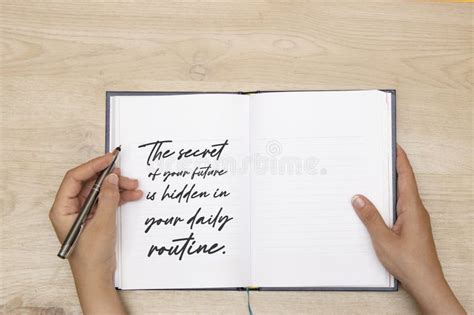 The secret
of your future
is hidden in
your daily
routine.
dreamstime